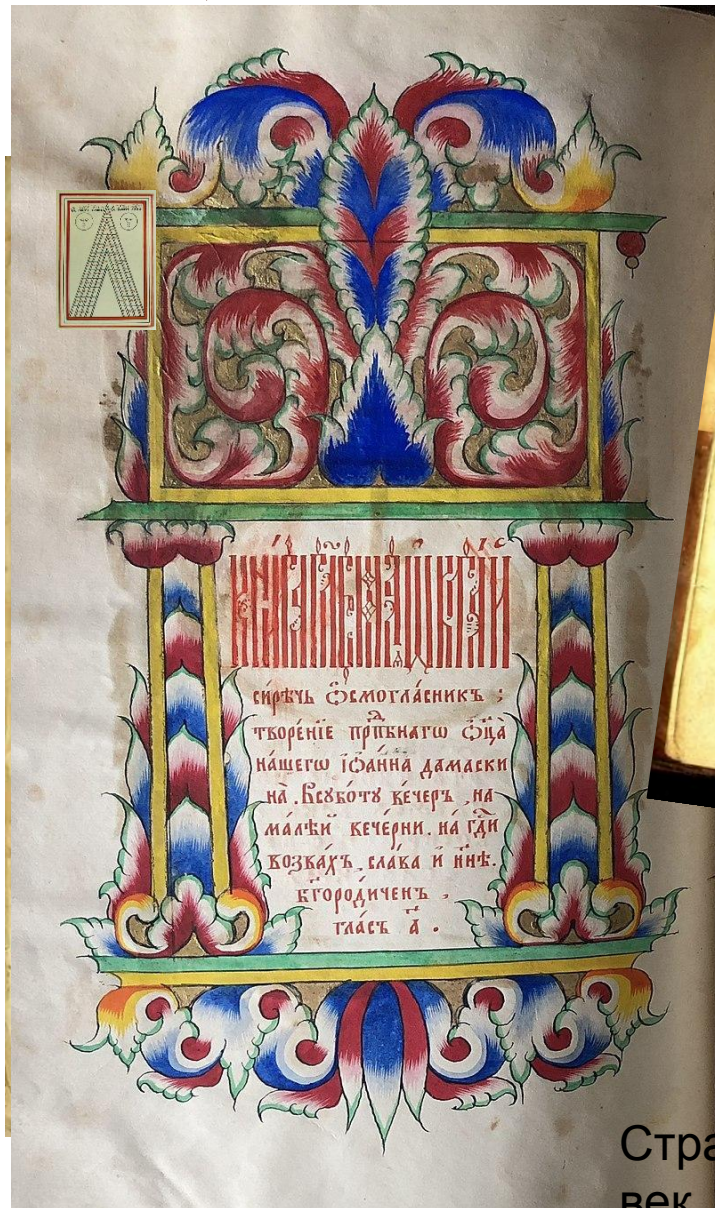 си́рѣчь ѻ҆смогла́сникъ ;
творе́нїе прⷣпбнагѡ ѻ҆ц҃а̀
на́шегѡ і҆ѡа́нна дамаски
на̀ . Всꙋбо́тꙋ ве́черъ , на
ма́лѣй вече́рни . на́ гдⷭ҇и
возвах̾ъ , сла́ва и҆ нн҃ѣ .
бг҃оро́диченъ ,
гла́съ а҃ .
Стра
век